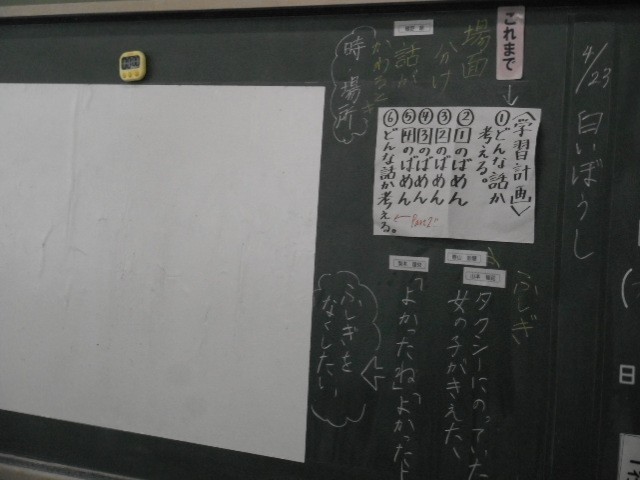 4/23 白いぼうし
これまで
場面
分け
話が
かわるとき
時・場所
〈学習計画〉
①どんな話か
考える。
②1のばめん
③2のばめん
④3のばめん
⑤4のばめん
⑥どんな話か考える。
←Part2
ふしぎ
タクシーにのっていた
女の子がきえた、
「よかったね」「よかったよ
ふしぎを
なくしたい
日